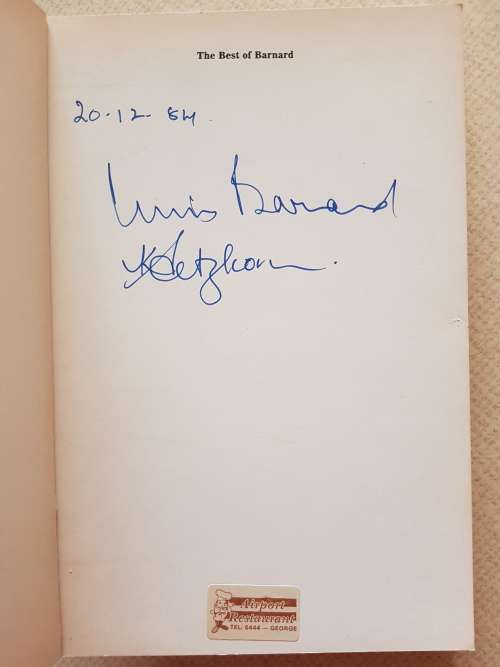 The Best of Barnard
20-12-84.
Chris Barnard
Airport
Restaurant
TEL: 6444 — GEORGE